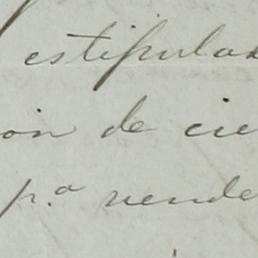 estipulad
ion de cie
p.ª vende